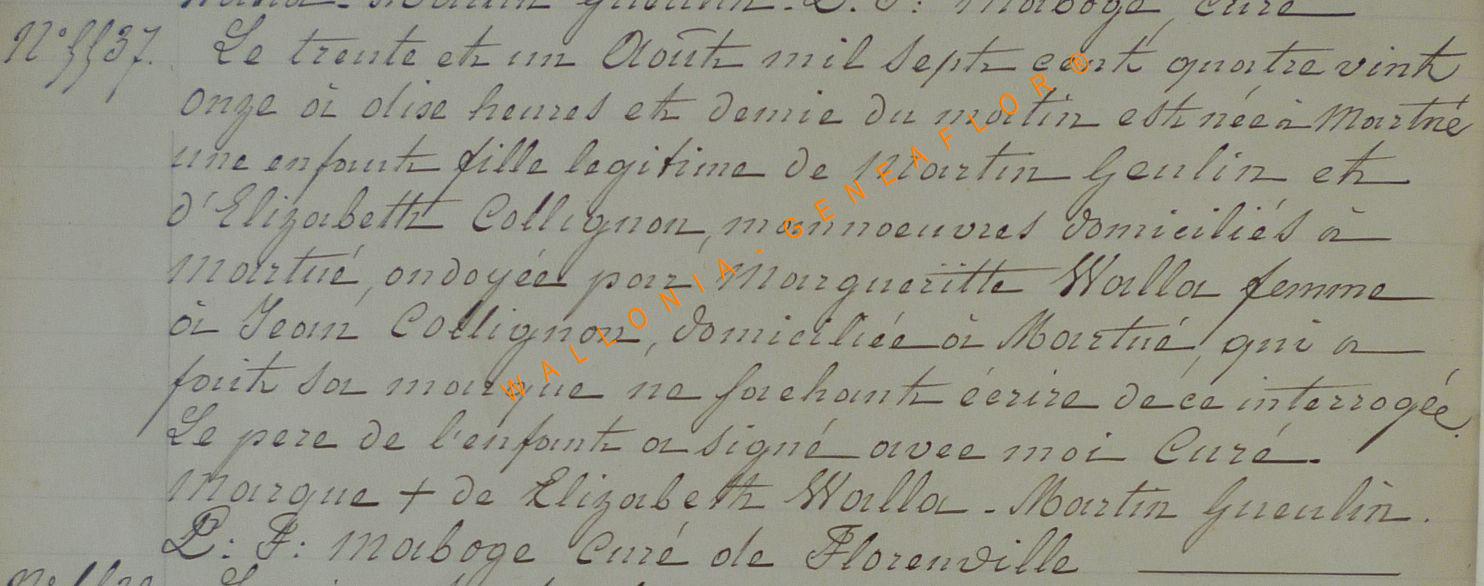 Maboge, curé
N° 5537. Le trente et un Août mil sept cent quatre vint
onze à dixe heures et demie du matin est née à Martué
une enfant fille legitime de Martin Geulin et
d'Elizabeth Collignon, mannoeuvres domiciliés à
Martué, ondoyée par Margueritte Walla femme
à Jean Collignon, domiciliée à Martué, qui a
fait sa marque ne sachant écrire de ce interrogée.
Le pere de l'enfant a signé avec moi Curé.
Marque + de Elizabeth Walla - Martin Gueulin.
P: F: Maboge Curé de Florenville
WALLONIA-GENEAFLORE